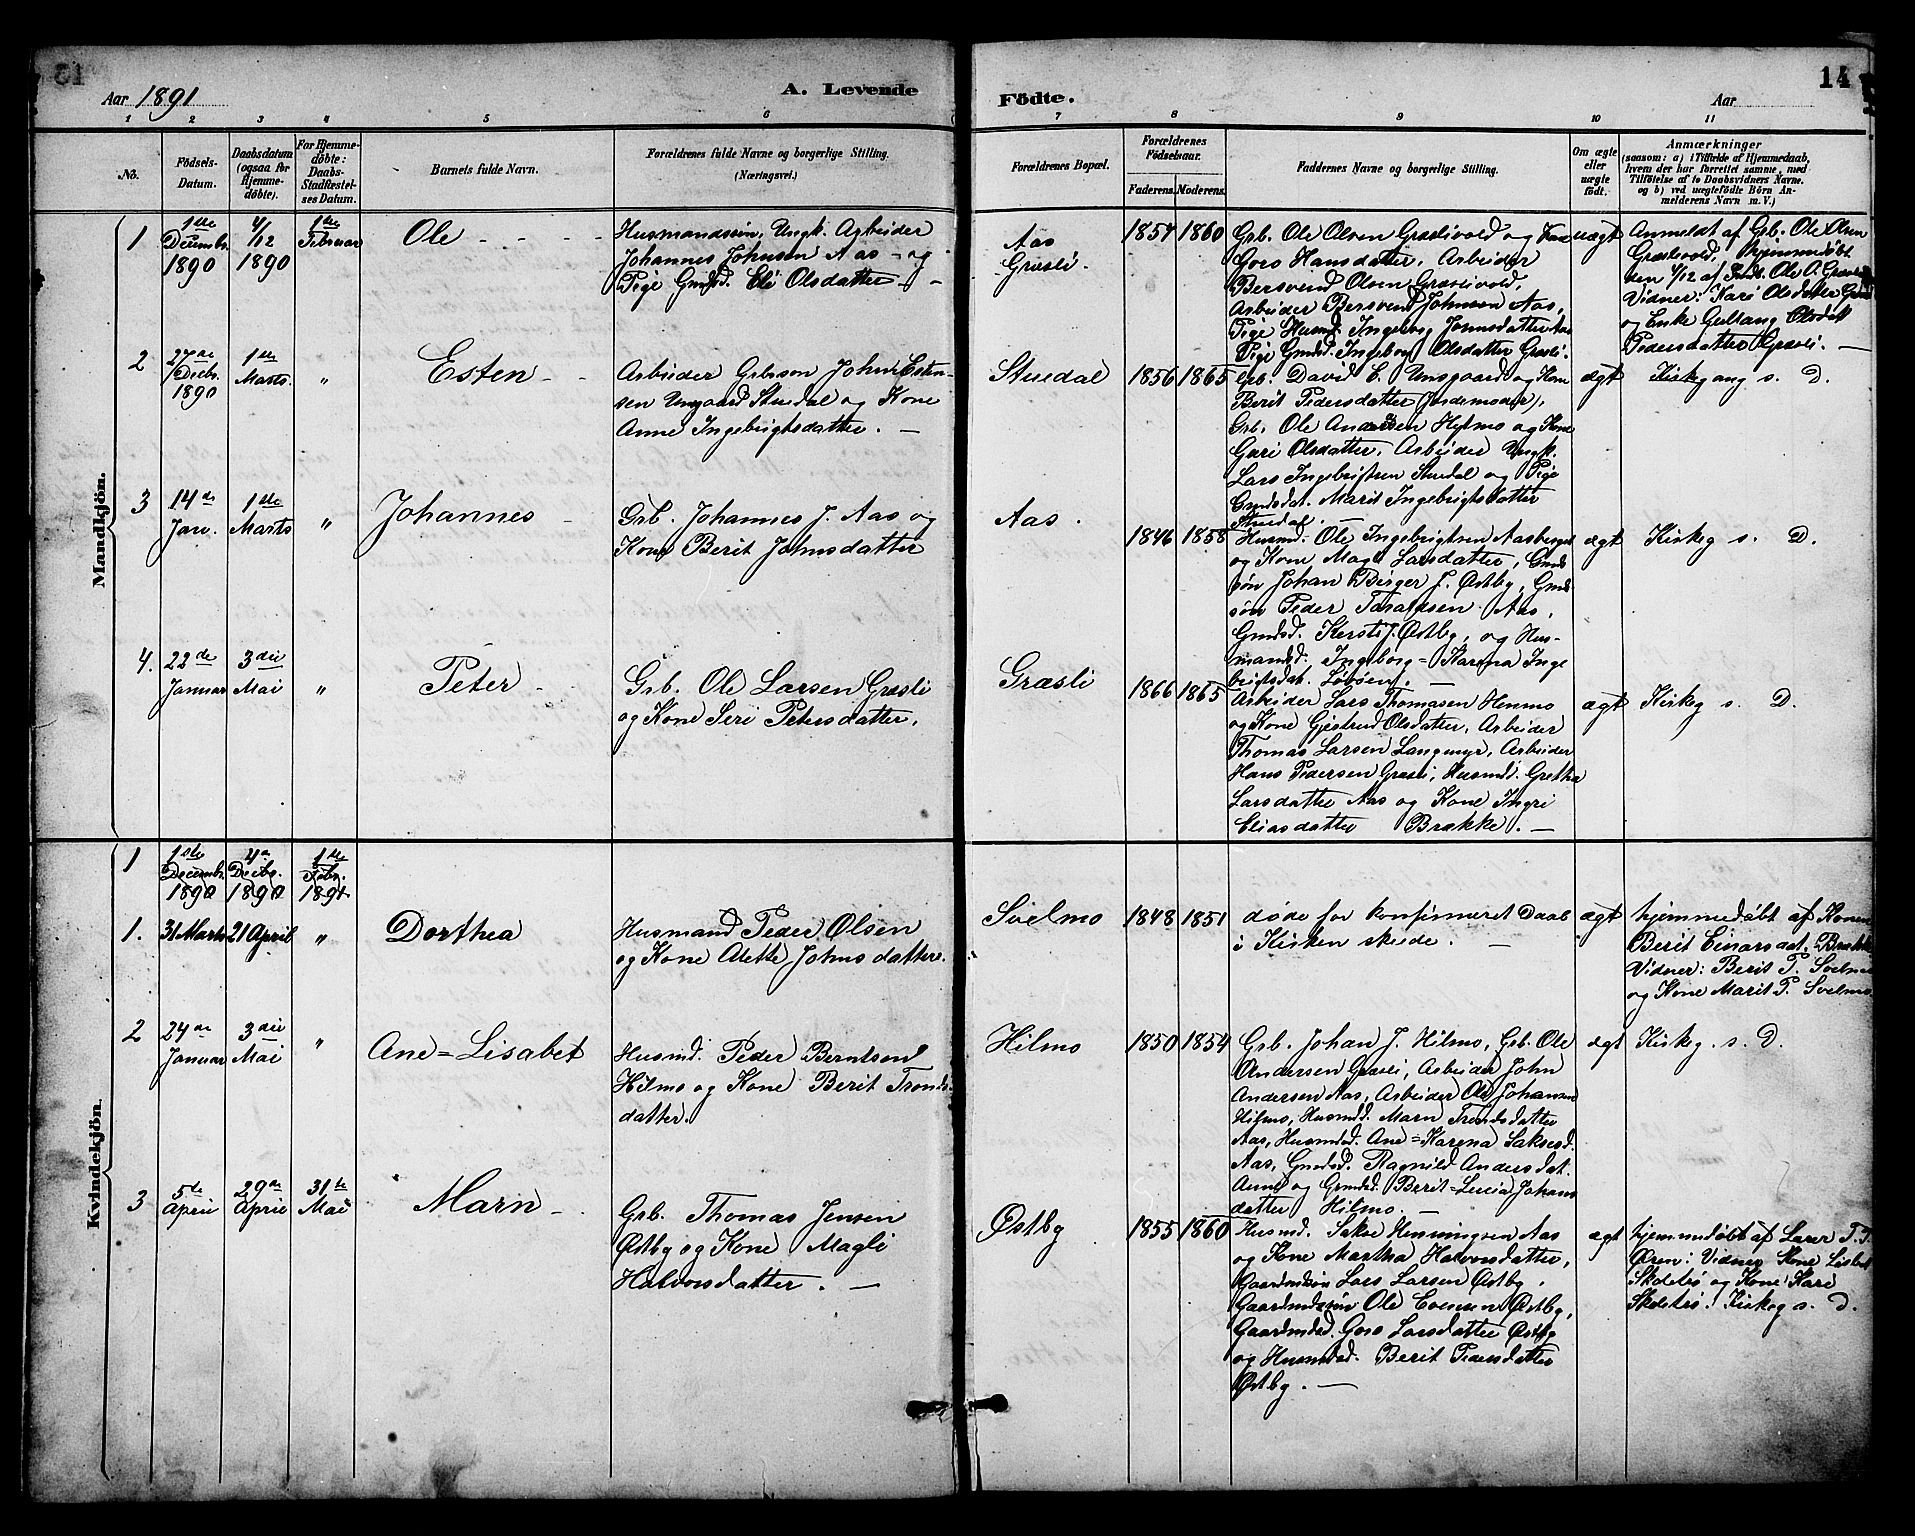 13
Aar 1891
A. Levende
Födte.
Aar
14
1 2 3 4 5 6 7 8 9 10 11
No.
Födsels-Datum.
Daabsdatum (ogsaa for Hjemmedöbte).
For Hjemmedöbte: Daabs-Stadfæstelses Datum.
Barnets fulde Navn.
Forældrenes fulde Navne og borgerlige Stilling.
(Næringsvei.)
Forældrenes Bopæl.
Forældrenes Födselsaar.
Faderens. Moderens.
Faddernes Navne og borgerlige Stilling.
Om ægte eller uægte födt.
Anmærkninger
(saasom: a) i Tilfælde af Hjemmedaab, hvem der har forrettet samme, med Tilföielse af to Daabsvidners Navne, og b) ved uægtefödte Börn Anmelderens Navn m. V.)
Mandkjön.
1
1ste Decembr. 1890
4/12 1890
1ste Februar
Ole
Husmandssøn, Ungk. Arbeider
Johannes Johnsen Aas og
Pige Gmdsd. Eli Olsdatter
Aas
Græsli
1857 1860
Grb. Ole Olsen Græslivold og Kone
Goro Hansdatter, Arbeider
Bersvend Olsen Græslivold,
Arbeider Bersvend Johnsen Aas,
Pige Husmd. Ingeborg Johnsdatter Aas
Pige Gmdsd. Ingeborg Olsdatter Græsli.
uægt
Anmeldt af Grb. Ole Olsen
Græslivold, Hjemmedøbt
den 4/12 af Ole A. Græsli
Vidner: Kari Olsdatter
og Enke Gullaug Olsdat
Pedersdatter Græsli.
2
27de Decbr. 1890
1ste Marts
"
Esten
Arbeider Grbsøn John Esten-
sen Ungaard Stuedal og Kone
Anne Ingebrigtsdatter.
Stuedal
1856 1865
Grb. David E. Unsgaard og Kone
Berit Pedersdatter (Jordemoder),
Grb. Ole Andersen Hilmo og Kone
Guri Olsdatter, Arbeider Ungk.
Lars Ingebrigtsen Stuedal og Pige
Gmdsdat. Marit Ingebrigtsdatter
Stuedal.
ægt
Kirkegang s. D.
3
14de Jan.
1ste Marts
"
Johannes
Grb. Johannes J. Aas og
Kone Berit Johnsdatter
Aas.
1846 1858
Husmd. Ole Ingebrigtsen Aasberget
og Kone Magli Larsdatter, Gmds
søn Johan Birger J. Østby, Gmds
søn Peder Aas,
Gmdsd. Kersti J. Østby, og Hus-
mandsd. Ingeborg=Karena Inge
brigtsdat. Løvøen.
ægt
Kirkeg s. D.
4.
22de Januar
3die Mai
"
Peter
Grb. Ole Larsen Græsli
og Kone Siri Petersdatter.
Græsli
1866 1865
Arbeider Lars Thomasen Henmo
og Kone Gjertrud Olsdatter, Arbeider
Thomas Larsen Langmyr, Arbeider
Hans Pedersen Græsli, Husmd. Gretha
Larsdatter Aas og Kone Ingri
Eliasdatter Brække.
ægt
Kirkeg s. D.
Kvindekjön.
1
1ste Decembr. 1890
4de Decbr. 1890
1ste Febr. 1891
1.
31 Marts
21 April
"
Dorthea
Husmand Peder Olsen
og Kone Olette Johnsdatter.
Svelmo
1848 1851
døde før konfirmeret Daab
i Kirken skede.
ægt
hjemmedøbt af Konen
Berit Einarsdat. Brække
Vidner: Berit P. Svelmo
og Kone Marit P. Svelmo.
2
24de Januar
3die Mai
"
Ane=Lisabet
Husmd. Peder Berntsen
Hilmo og Kone Berit Tronds
datter.
Hilmo
1850 1854
Grb. Johan J. Hilmo, Grb. Ole
Andersen Græsli, Arbeider John
Andersen Aas, Arbeider Ole Johansen
Hilmo, Husmd. Marn Trondsdatter
Aas, Husmdsd. Ane=Karena Saksesd.
Aas, Gmdsd. Ragnild Andersdat.
Aune og Grmdsd. Berit=Lucia Johans
datter Hilmo.
ægt
Kirkeg. s. D.
3
5te April
29de April
31te Mai
Marn
Grb. Thomas Jensen
Østby og Kone Magli
Halvorsdatter.
Østby
1855 1860
Husmd. Sakse Henningsen Aas
og Kone Martha Halvorsdatter,
Gaardmdsøn Lars Larsen Østby,
Gaardmdssøn Ole Evensen Østby,
Gaardmdsd. Goro Larsdatter Østby
og Husmdsd. Berit Pedersdatter
Østby.
ægt
hjemmedøbt af Lærer T. T.
Øren: Vidner Kone Lisbet
Skdetrø og Kone Kari
Skdetrø. Kirkeg s. D.